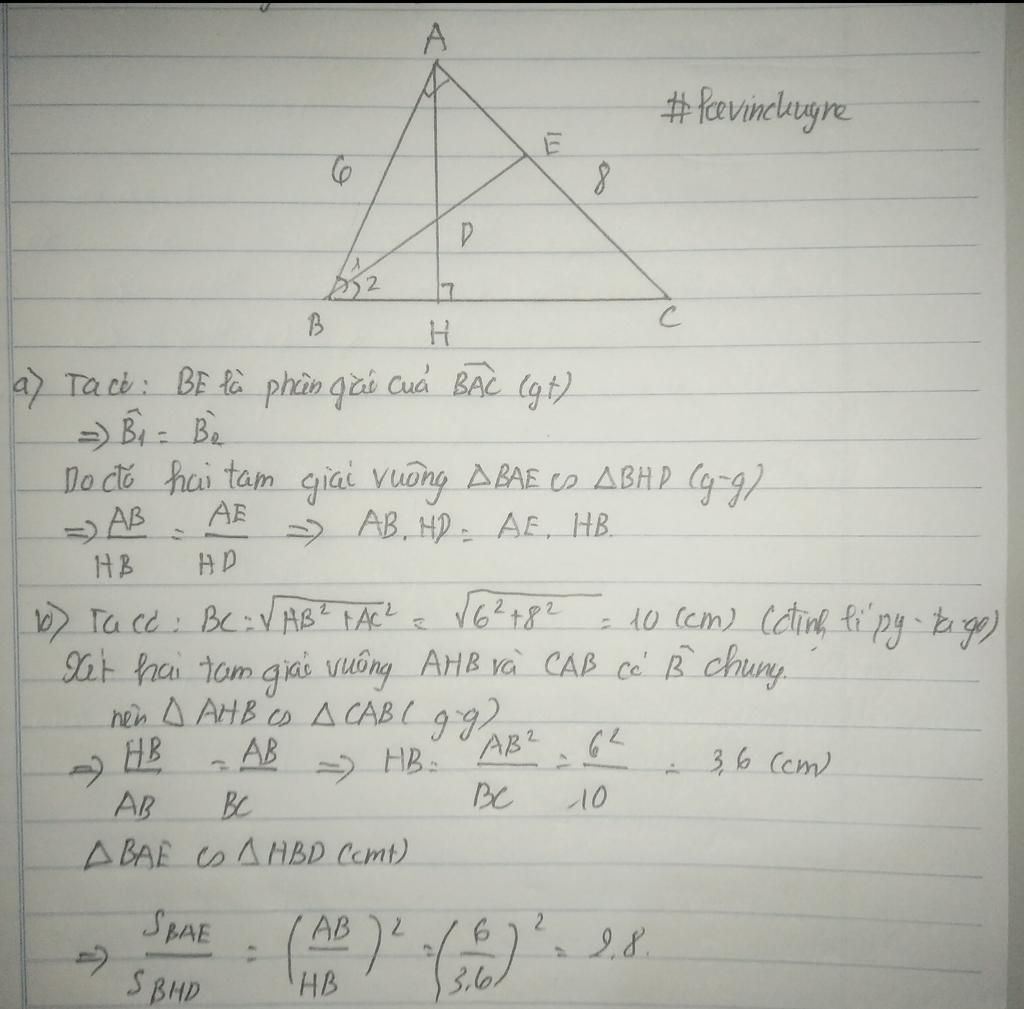 A
#Pcevinchugre
E
6
8
D
1
2
B
H
C
a) Ta có: BE là phân giác của BAC (gt)
=> B̂1 = B̂2
Do đó hai tam giác vuông ΔBAE ∽ ΔBHD (g-g)
=> AB/HB = AE/HD => AB. HD = AE. HB.
b) Ta có: BC = √AB² + AC² = √6² + 8² = 10 (cm) (định lí py-ta-go)
Xét hai tam giác vuông AHB và CAB có B̂ chung.
nên Δ AHB ∽ Δ CAB ( g-g)
=> HB/AB = AB/BC => HB = AB²/BC = 6²/10 = 3,6 (cm)
Δ BAE ∽ Δ HBD (cmt)
=> S BAE/S BHD = (AB/HB)² = (6/3,6)² = 2,8.